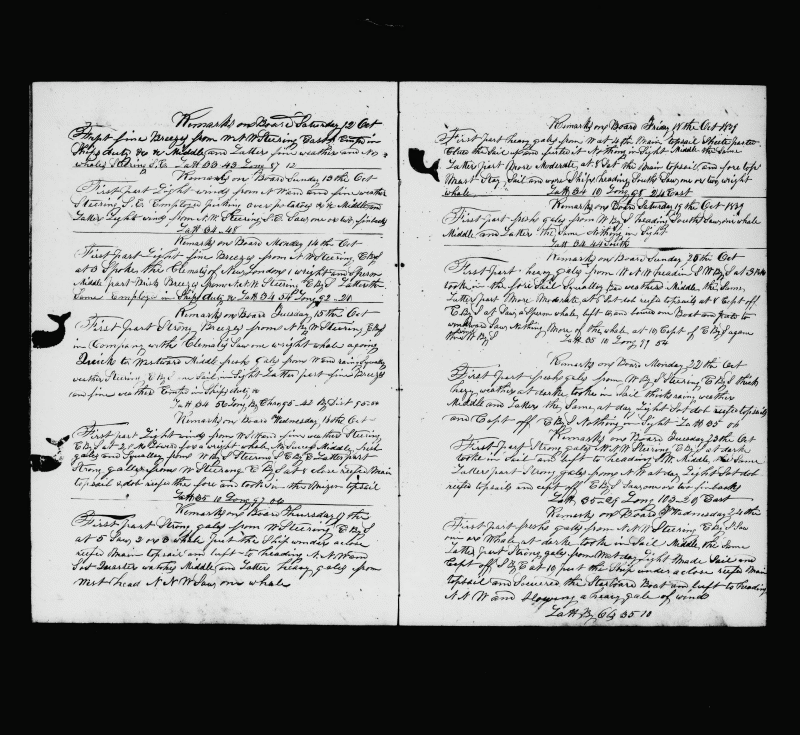 Remarks on Board Saturday 12 Oct
First part fine Breezes from W N W Steering East
Ships duty &c &c Middle and Latter fine weather and no
whales Steering S.E. Latt 33-43 Long 87 12
Remarks on Board Sunday 13th Oct
First part Light winds from N W and fine weather
Steering S.E. Employed picking over potatoes &c Middle and
Latter Light winds from N.W. Steering S.E. Saw one or two finbacks
Latt 34-48
Remarks on Board Monday 14th Oct
First part Light fine Breezes from N W Steering E By S
at 3 Spoke the Clematis of New London 1 wright and Sperm
Middle part Brisk Breezes from N W Steering E By S Latter the
Same Employed in Ships duty &c Latt 34 54 Long 92-21
Remarks on Board Tuesday 15th Oct
First part Strong Breezes from N W Steering E By S
in Company with the Clematis Saw one wright whale agoing
Quick to Westward Middle fresh gales from W and rain Squally
weather Steering E By S no Sail in Light Latter part fine Breezes
and fine weather in Ships duty &c
Latt 34 50 Long By Chro 95-43 By Dist 95-00
Remarks on Board Wednesday 16th Oct
First part Light winds from W S W and fine weather Steering
E By S at 2 Lowered for a wright whale Middle fresh
gales and Squally from W By S Steering E By S Latter part
Strong gales from W Steering E By S at 8 close reefed Main
topsail dot reefs the fore and tooke in the Mizen topsail
Latt 35 10 Long 97 04
Remarks on Board Thursday 17th
First part Strong gales from W Steering E By S
at 5 Saw 2 or 3 put the Ship under a close
reefed Main topsail and left to heading N N W and
Sot Quarter watches Middle and Latter heavy gales from
west head N N W Saw one whale
Remarks on Board Friday 18th Oct 1839
First part heavy gales from W at 4 the Main topsail Sheets parted
Clued the Sail up and furled it Nothing in Sight Middle the Same
Latter part More Moderate at 8 Sot the Main topsail and fore top
Mast Stay Sail and wore Ship heading South Saw one or two wright
whale Latt 34 10 Long 98 24 East
Remarks on Board Saturday 19th Oct 1839
First part fresh gales from W By S heading South Saw one whale
Middle and Latter the Same Nothing in Sight
Latt 34 44 South
Remarks on Board Sunday 20th Oct
First part heavy gales from W N W heading S W By S at 3
tooke in the fore Sail Squalley weather Middle the Same
Latter part More Moderate at 6 Sot dot reefed topsails at 8 Kept off
E By S at Saw a Sperm whale left to and lowered one Boat and goes to
windward Saw Nothing More of the whale at 10 Kept off E By S again
Wind W By S Latt 35 10 Long 99 54
Remarks on Board Monday 22th Oct
First part fresh gales from W By S Steering E By S thick
heavy weather at darke tooke in Sail thick rainy weather
Middle and Latter the Same, at day Light Sot dot reefed topsails
and Kept off E By S Nothing in Sight Latt 35 06
Remarks on Board Tuesday 23th Oct
First part Strong gales W N W Steering E By S at dark
tooke in Sail and left to heading S W Middle the Same
Latter part Strong gales from N W at day Light Sot dot
reefed topsails and cept off E By S Saw one or two finbacks
Latt 35-25 Long 103-20 East
Remarks on Board Wednesday 24th
First part fresh gales from N N W Steering E By S Saw
one or Whale at darke tooke in Sail Middle the Same
Latter part Strong gales from West day Light Made Sail and
Kept off E By S at 10 put the Ship under a close reefed Main
topsail and Secured the Starboard Boat and left to heading
N N W and Blowing a heavy gale of wind
Latt By Obs 35 10